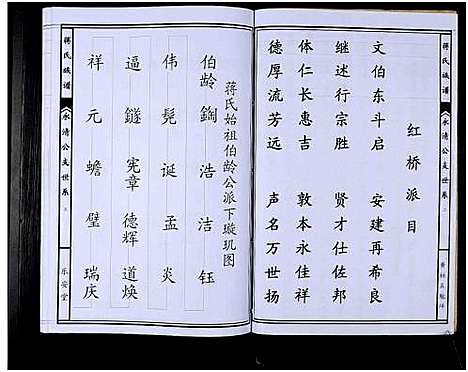 红桥派目
文伯东斗启 安建再希良
继述行宗胜 贤才仕佐邦
体仁长惠吉 敦本永佳祥
德厚流芳远 声名万世扬
蒋氏始祖伯龄公派下璇玑图
伯龄 鉤 浩 洁 钰
伟 髡 诞 孟 炎
逼 鐩 宪章 德辉 道焕
祥 元 蟾 璧 瑞庆
蒋氏族谱
永清公支世系
乐安堂